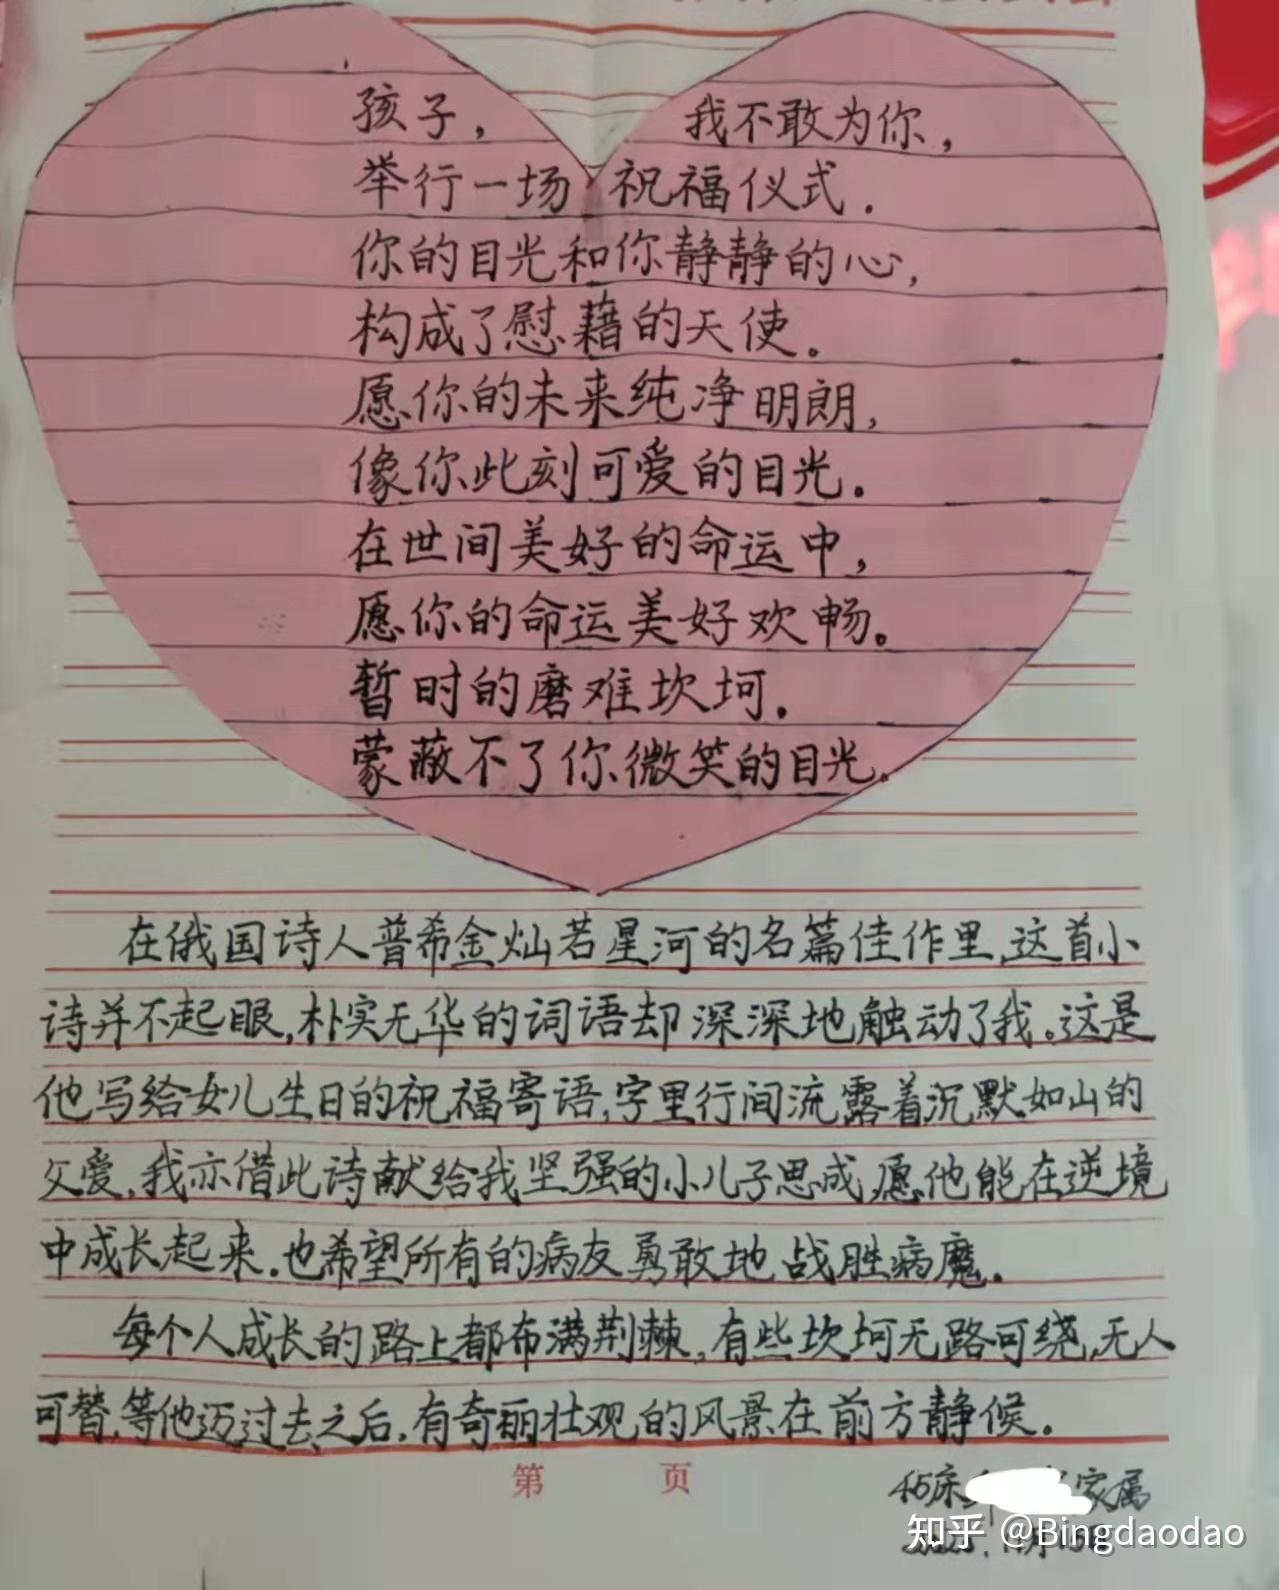 孩子，我不敢为你，
举行一场祝福仪式．
你的目光和你静静的心，
构成了慰藉的天使。
愿你的未来纯净明朗，
像你此刻可爱的目光。
在世间美好的命运中，
愿你的命运美好欢畅。
暂时的磨难坎坷．
蒙蔽不了你微笑的目光．
在俄国诗人普希金灿若星河的名篇佳作里，这首小
诗并不起眼，朴实无华的词语却深深地触动了我。这是
他写给女儿生日的祝福寄语，字里行间流露着沉默如山的
父爱，我亦借此诗献给我坚强的小儿子思成，愿他能在逆境
中成长起来．也希望所有的病友勇敢地战胜病魔．
每个人成长的路上都布满荆棘，有些坎坷无路可绕，无人
可替，等他迈过去之后，有奇丽壮观的风景在前方静候。
第 页
45床 家属
知乎 @Bingdaodao